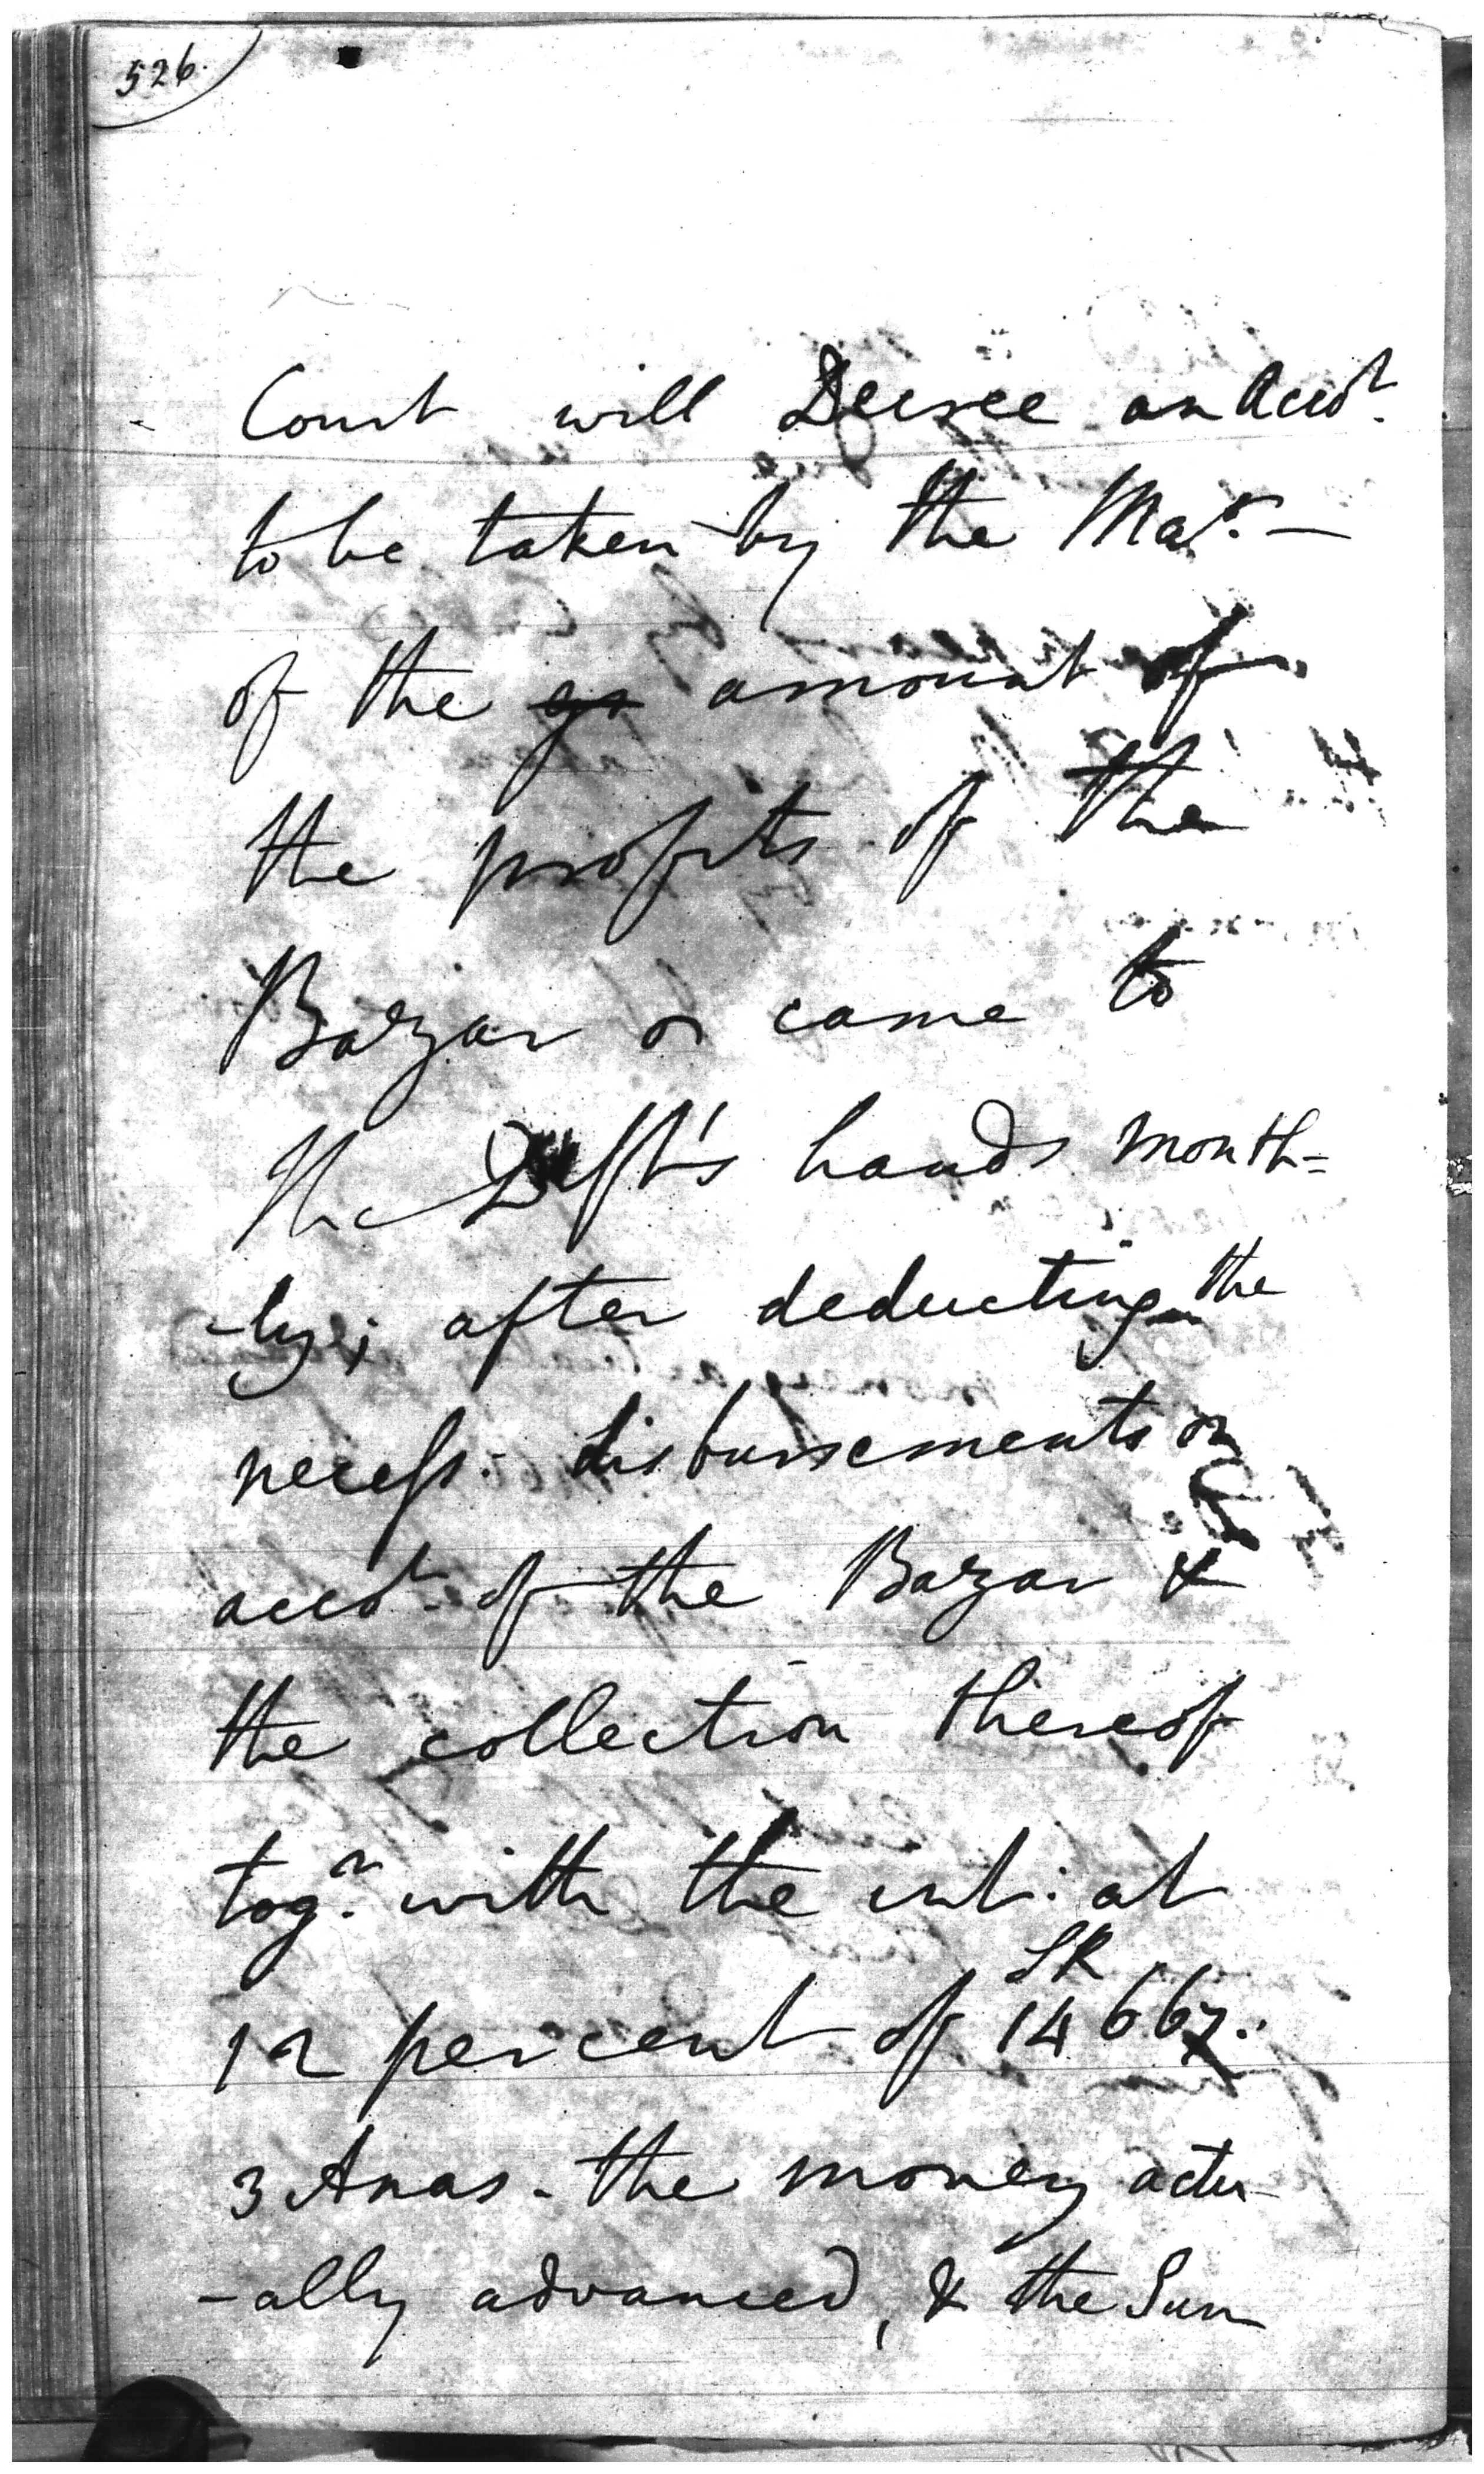 526.
Court will Decree an Accot.
to be taken by the Mar. —
of the gr amount of
the profits of the
Bazar or came to
the Deft's hands month=
-ly; after deducting the
necess: disbursements on
accot. of the Bazar &
the collection thereof
togr. with the int. at
SR
12 percent of 14667..
3 Anas - the money actu-
-ally advanced, & the Sum